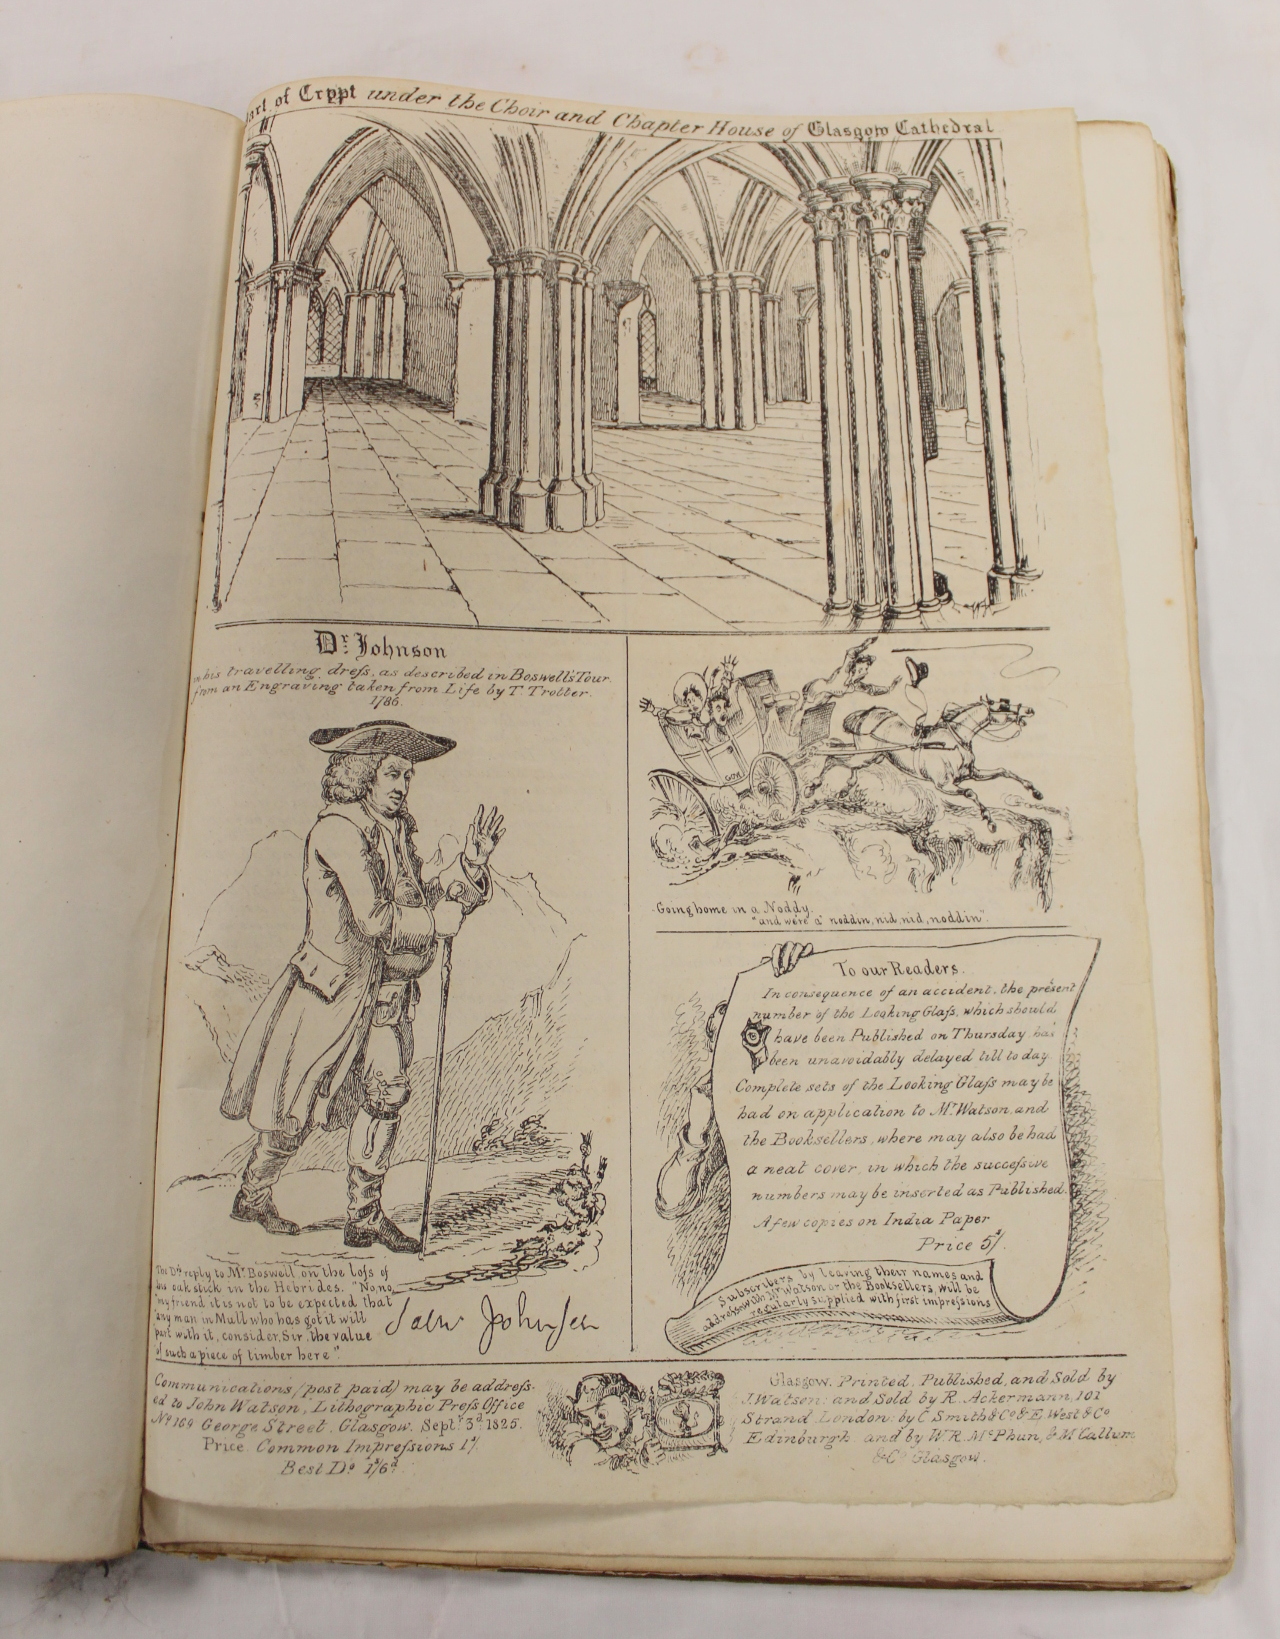 art of Crypt under the Choir and Chapter House of Glasgow Cathedral
Dr. Johnson
in his travelling dress, as described in Boswell's Tour
from an Engraving taken from Life by T. Trotter.
1786.
The Drs. reply to Mr. Boswell, on the loss of
his oak stick in the Hebrides. "No, no,
"my friend it is not to be expected that
"any man in Mull who has got it will
part with it, consider, Sir, the value
of such a piece of timber here".
Sam: Johnson
Going home in a Noddy.
"and we're a' noddin, nid, nid, noddin".
To our Readers.
In consequence of an accident, the present
number of the Looking Glass, which should
have been Published on Thursday has
been unavoidably delayed till to day.
Complete sets of the Looking Glass may be
had on application to Mr. Watson, and
the Booksellers, where may also be had
a neat cover, in which the successive
numbers may be inserted as Published.
A few copies on India Paper
Price 5/.
Subscribers by leaving their names and
address with Mr. Watson or the Booksellers, will be
regularly supplied with first impressions
Communications (post paid) may be address-
ed to John Watson, Lithographic Press Office
No. 169 George Street, Glasgow. Sept. 3d. 1825.
Price Common Impressions 1/.
Best Do. 1s/6d.
Glasgow, Printed, Published, and Sold by
J. Watson: and Sold by R. Ackermann, 101
Strand, London: by C. Smith & Co. & E. West & Co
Edinburgh and by W.R. McPhun, & McCallum
& Co. Glasgow.